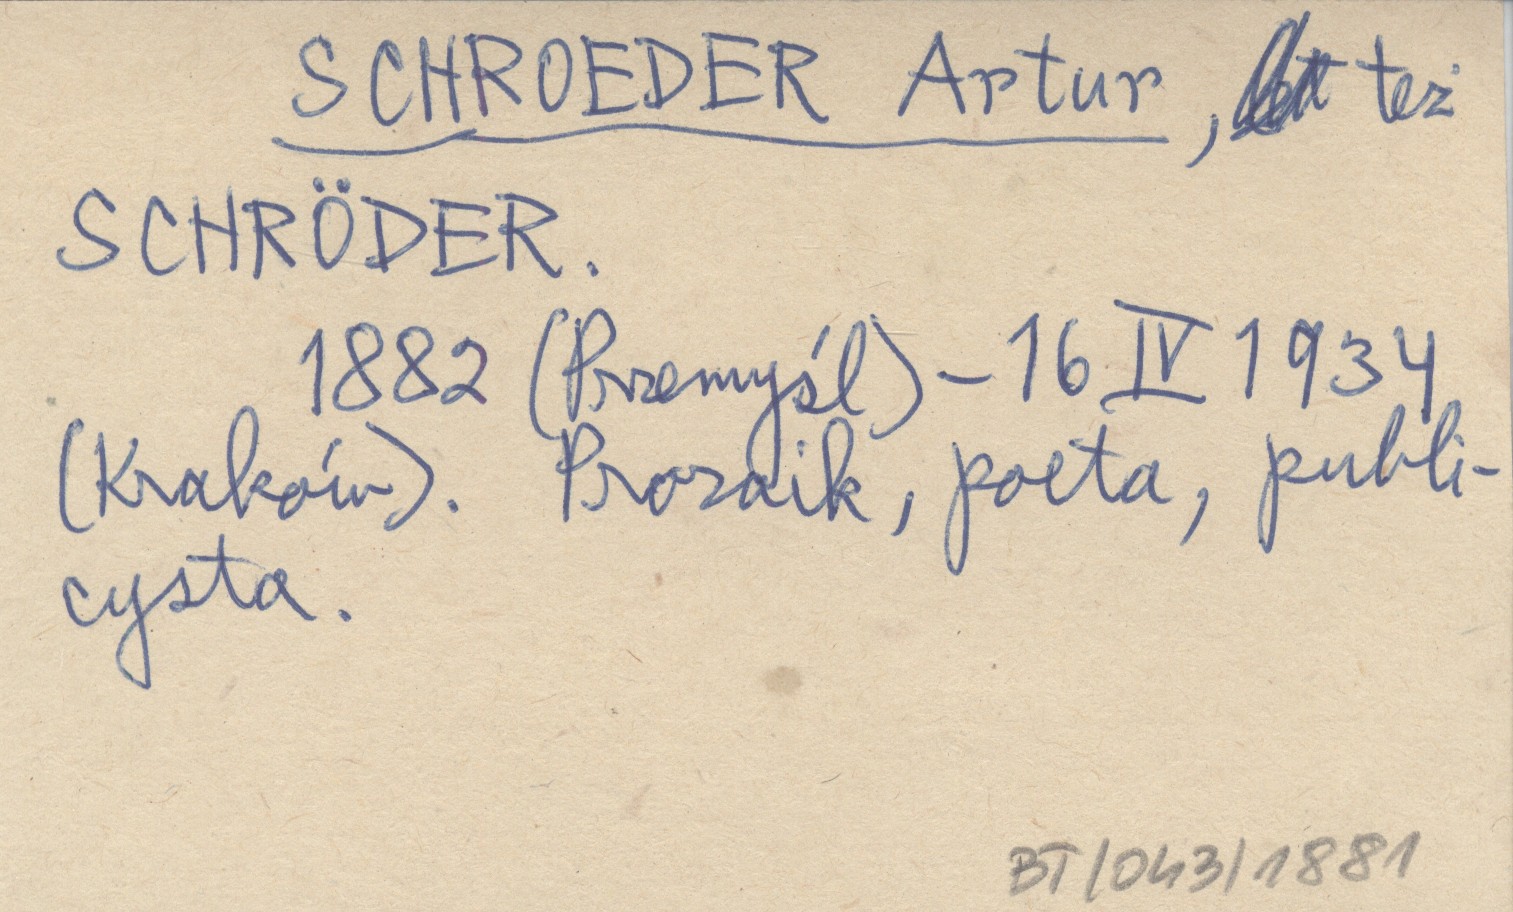 SCHROEDER Artur, też
SCHRÖDER.
1882 (Przemyśl) – 16 IV 1934
(Kraków). Prozaik, poeta, publi-
cysta.
BT/043/1881